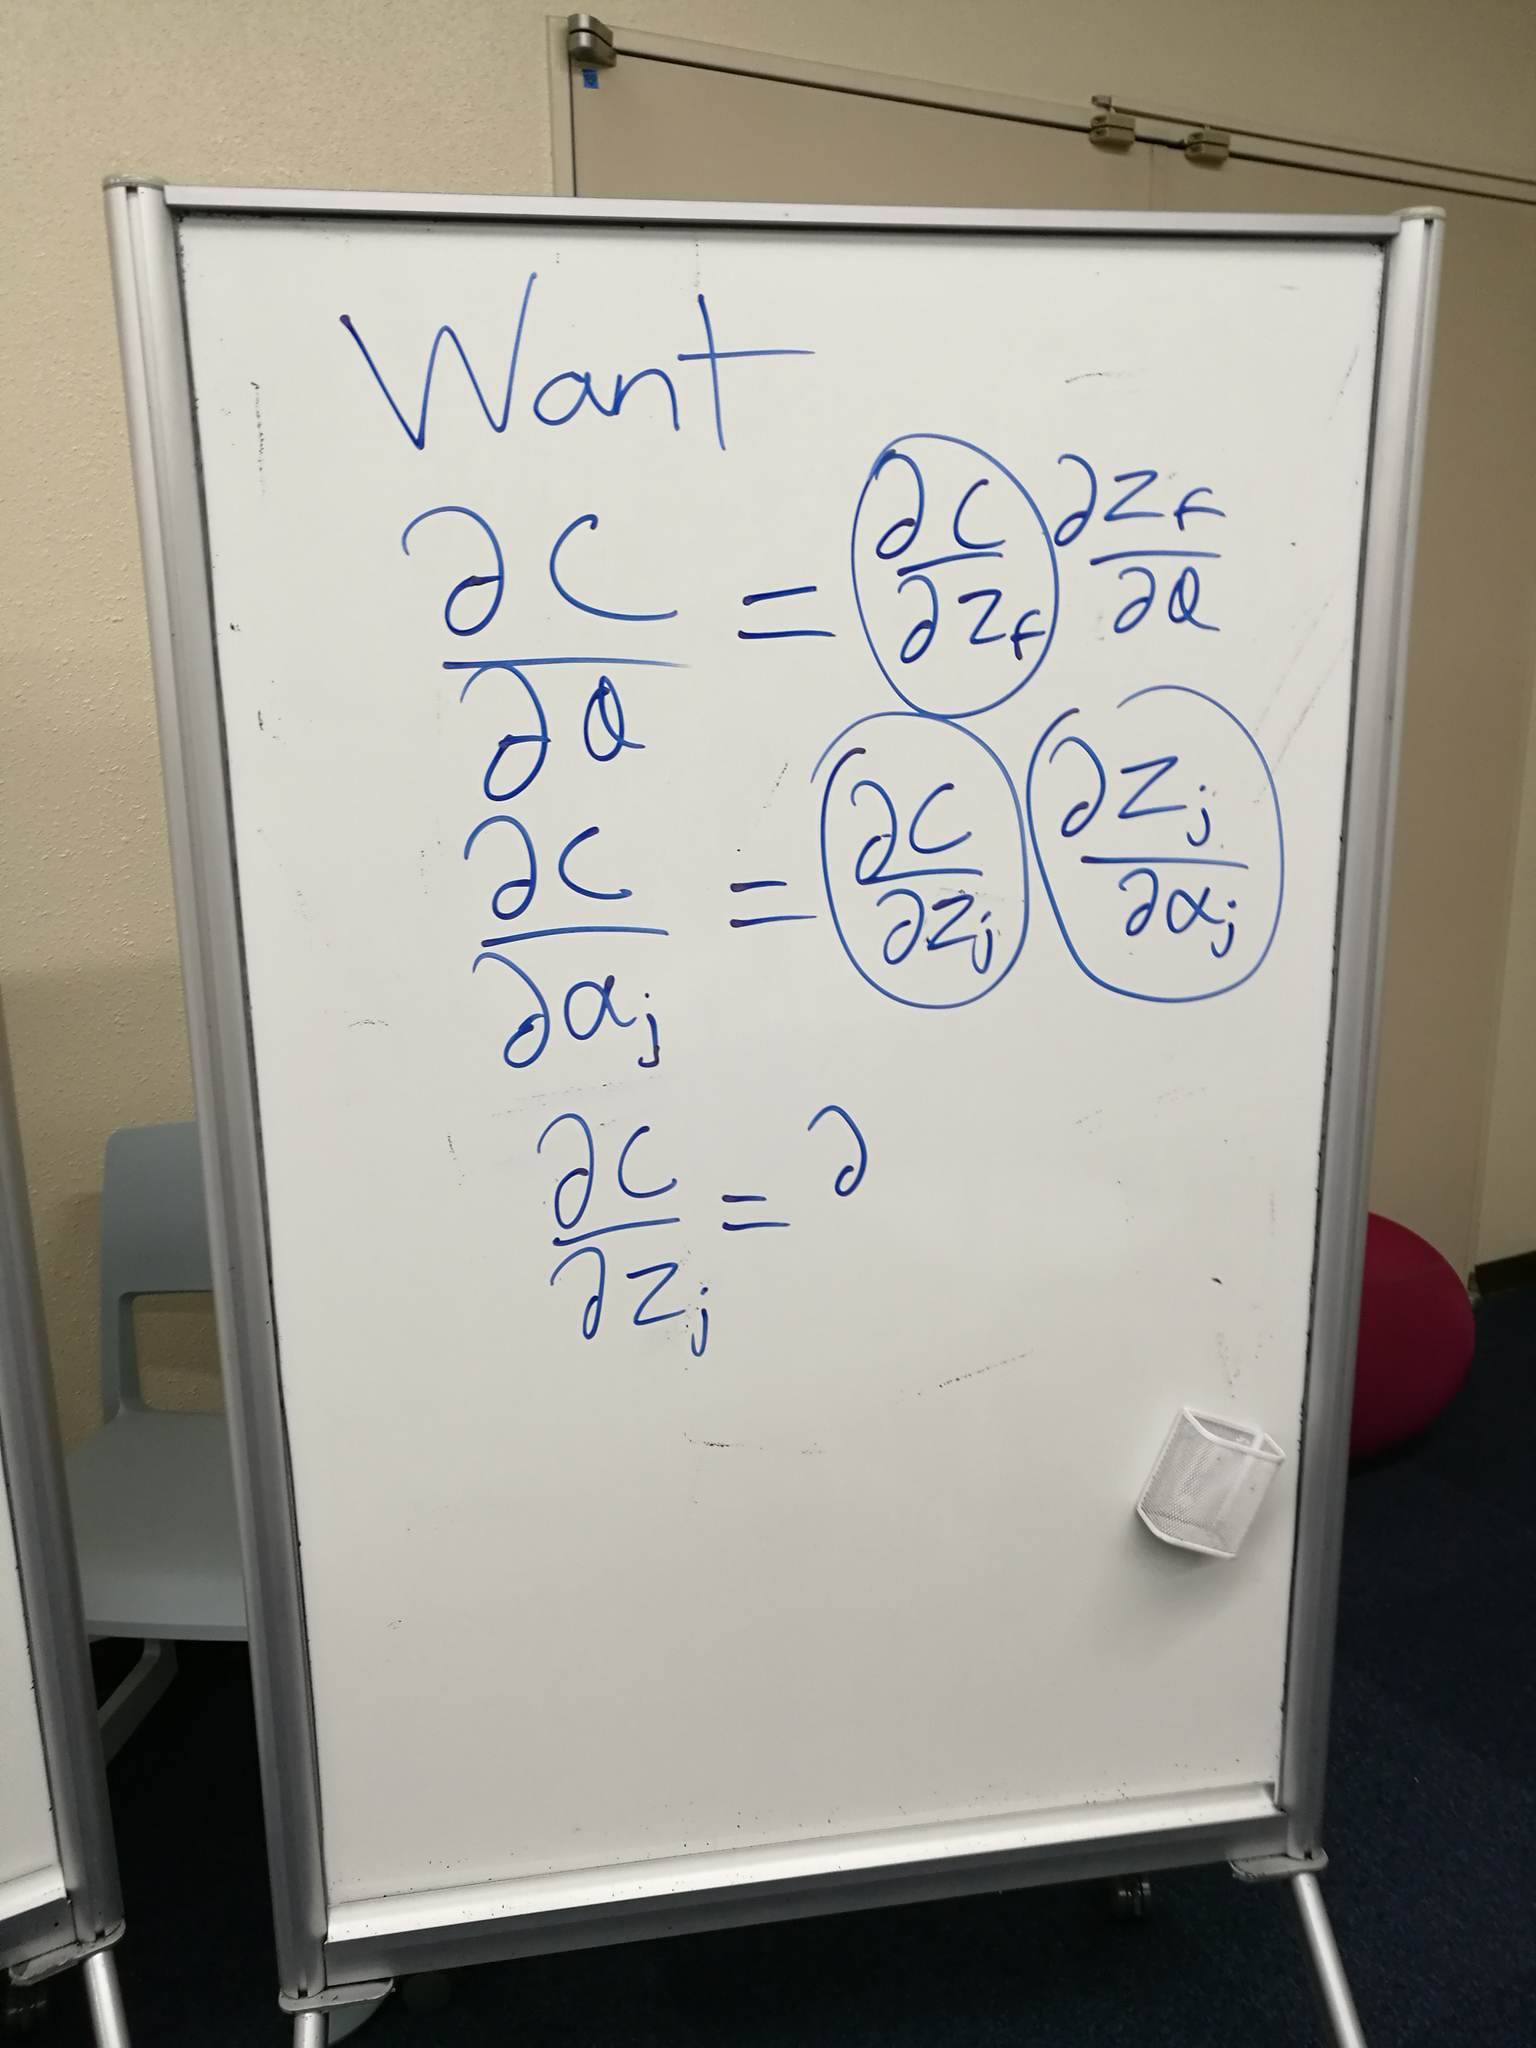 Want
∂C/∂Q = ∂C/∂Z_f ∂Z_f/∂Q
∂C/∂α_j = ∂C/∂Z_j ∂Z_j/∂α_j
∂C/∂Z_j = ∂